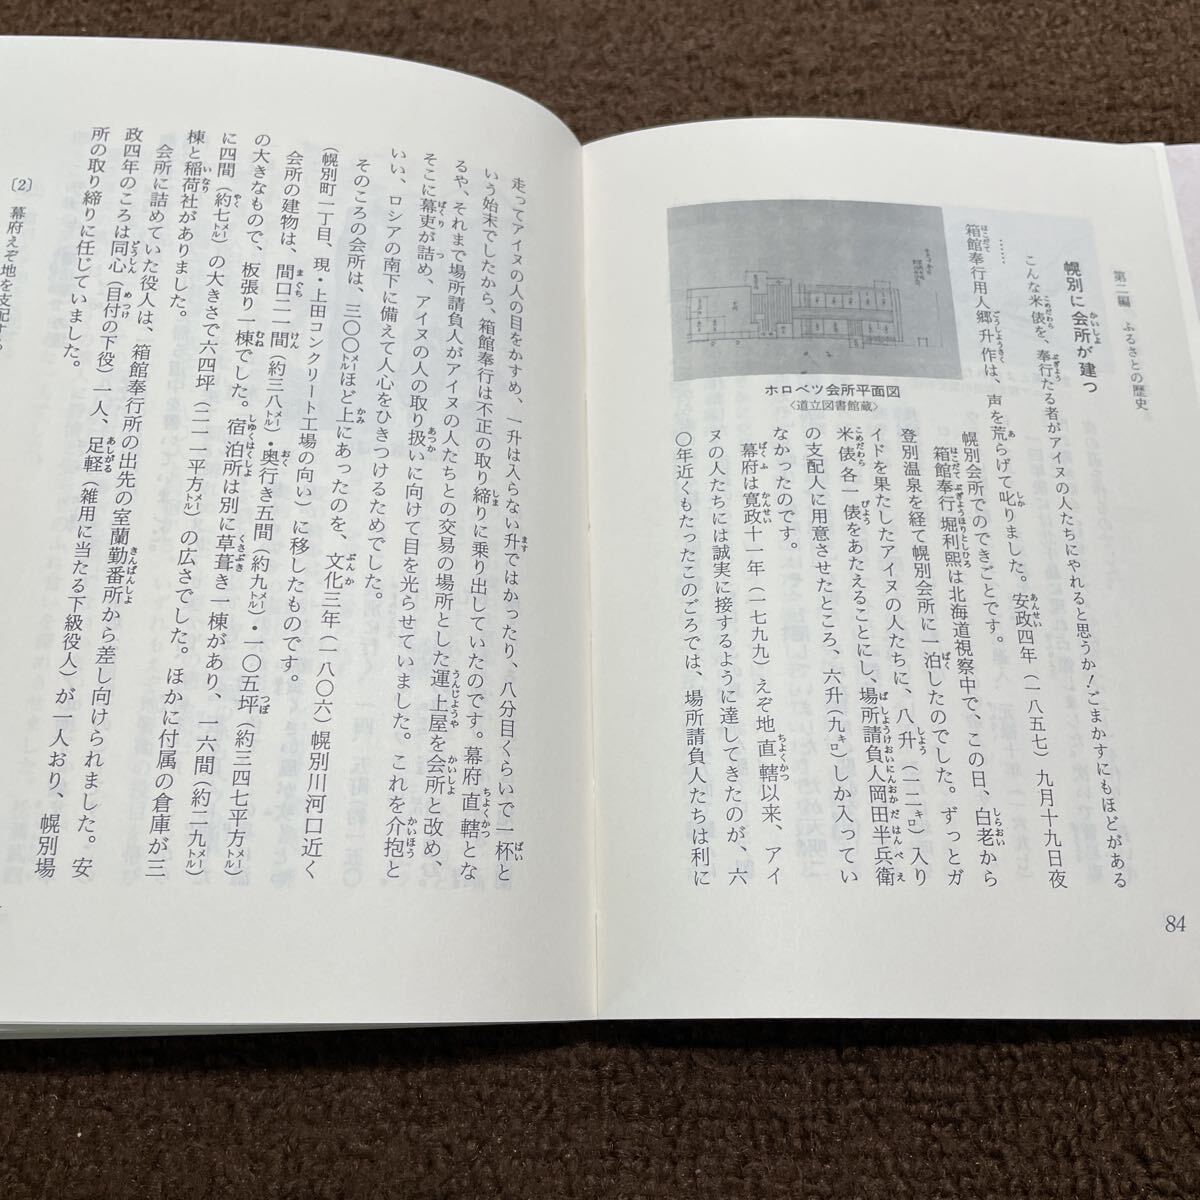 第二編 ふるさとの歴史
幌別に会所が建つ
こんな米俵を、奉行たる者がアイヌの人たちにやれると思うか!ごまかすにもほどがある
……
箱館奉行用人郷升作は、声を荒らげて叱りました。安政四年(一八五七)九月十九日夜
幌別会所でのできごとです。
箱館奉行堀利熙は北海道視察中で、この日、白老から
登別温泉を経て幌別会所に一泊したのでした。ずっとガ
イドを果たしたアイヌの人たちに、八升(一二キロ)入り
米俵各一俵をあたえることにし、場所請負人岡田半兵衛
の支配人に用意させたところ、六升(九キロ)しか入ってい
なかったのです。
幕府は寛政十一年(一七九九)えぞ地直轄以来、アイ
ヌの人たちには誠実に接するように達してきたのが、六
〇年近くもたったこのごろでは、場所請負人たちは利に
ホロベツ会所平面図
〈道立図書館蔵〉
84
走ってアイヌの人の目をかすめ、一升は入らない升ではかったり、八分目くらいで一杯と
いう始末でしたから、箱館奉行は不正の取り締りに乗り出していたのです。幕府直轄とな
るや、それまで場所請負人がアイヌの人たちとの交易の場所とした運上屋を会所と改め、
そこに幕吏が詰め、アイヌの人の取り扱いに向けて目を光らせていました。これを介抱と
いい、ロシアの南下に備えて人心をひきつけるためでした。
そのころの会所は、三〇〇メートルほど上にあったのを、文化三年(一八〇六)幌別川河口近く
(幌別町一丁目、現・上田コンクリート工場の向い)に移したものです。
会所の建物は、間口二一間(約三八メートル)・奥行き五間(約九メートル)・一〇五坪(約三四七平方メートル)
の大きなもので、板張り一棟でした。宿泊所は別に草葺き一棟があり、一六間(約二九メートル)
に四間(約七メートル)の大きさで六四坪(二一一平方メートル)の広さでした。ほかに付属の倉庫が三
棟と稲荷社がありました。
会所に詰めていた役人は、箱館奉行所の出先の室蘭勤番所から差し向けられました。安
政四年のころは同心(目付の下役)一人、足軽(雑用に当たる下級役人)が一人おり、幌別場
所の取り締りに任じていました。
〔2〕 幕府えぞ地を支配する